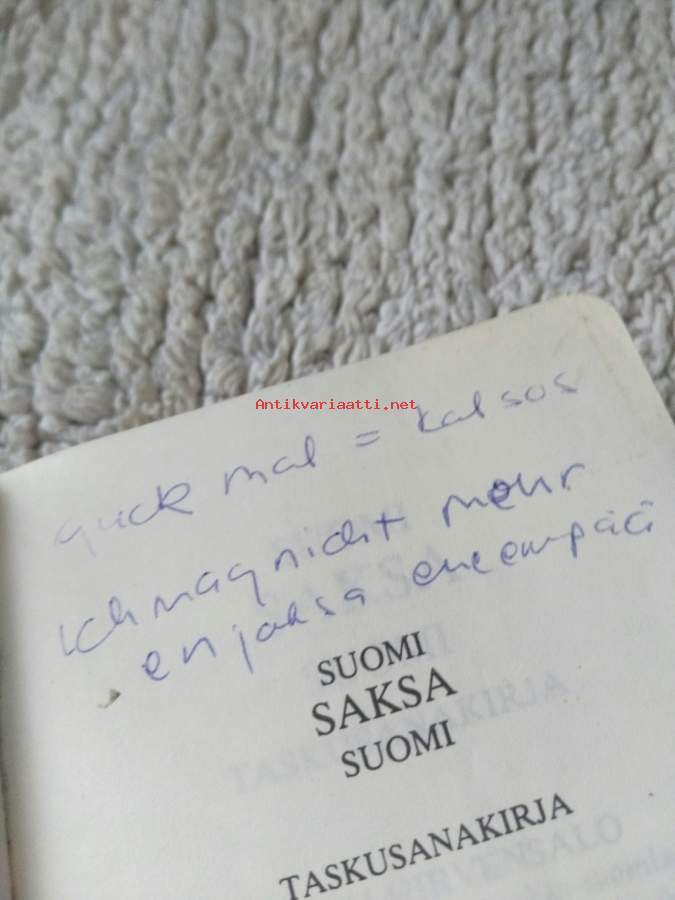 Antikvariaatti.net
guck mal = katsos
ich mag nicht mehr
en jaksa eneempää
SUOMI
SAKSA
SUOMI
TASKUSANAKIRJA